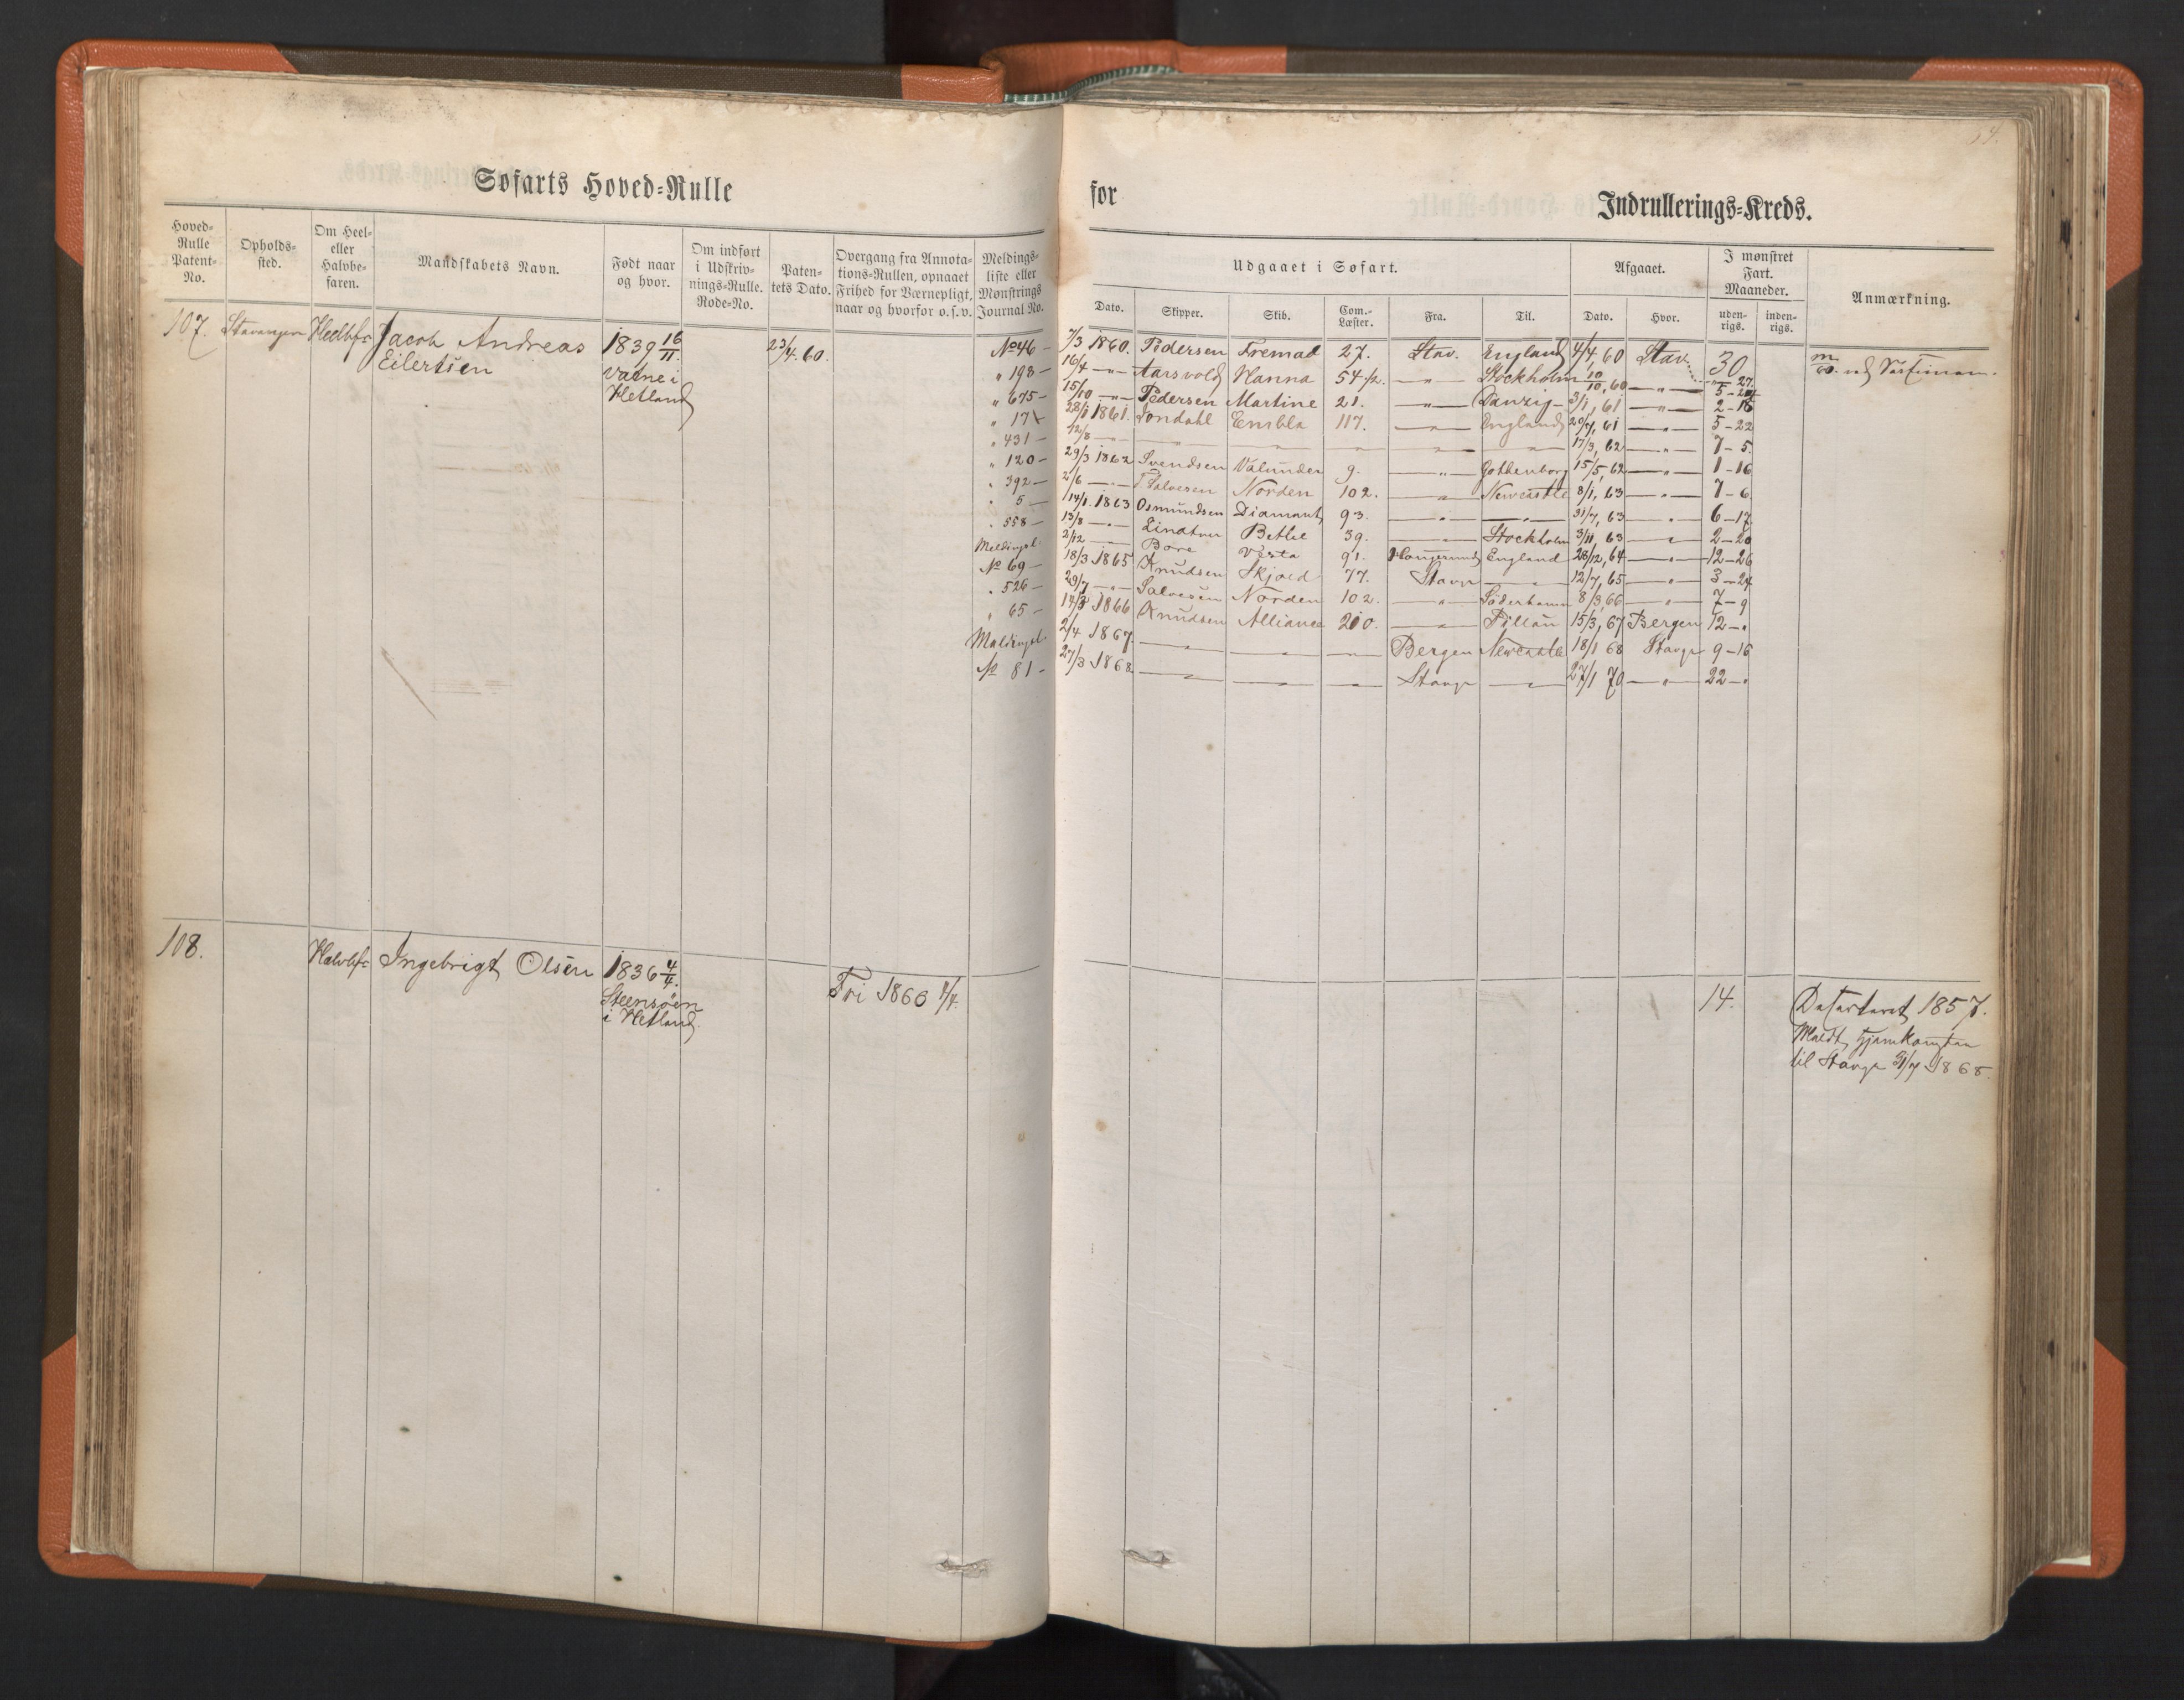 Søfarts Hoved-Rulle
for
Indrullerings-Kreds.
Hoved-Rulle Patent-No.
Opholds-sted.
Om Heel- eller Halvbe-faren.
Mandskabets Navn.
Født naar og hvor.
Om indført i Udskriv-nings-Rulle. Rode-No.
Paten-tets Dato.
Overgang fra Annota-tions-Rullen, opnaaet Frihed for Værnepligt, naar og hvorfor o.s.v.
Meldings-liste eller Mønstrings Journal No.
Udgaaet i Søfart.
Afgaaet.
I mønstret Fart. Maaneder.
Anmærkning.
Dato. Skipper. Skib. Com.-Læster. Fra. Til. Dato. Hvor. uden-rigs. inden-rigs.
107. Stavanger Heelbf. Jacob Andreas 1839 16/11. 23/4.60.
Eilertsen Vatne i
Hetland
No 46 — 7/3 1860. Pedersen Fremad 27. Stav. England 4/4, 60 Stav. 30
" 193 — 16/4 —"— Aarsvold Hanna 54 1/2. —"— Stockholm 10/10, 60 —"— 5 - 27
" 675 — 15/10 —"— Pedersen Martine 21. —"— Danzig 3/1, 61 —"— 2 - 18
" 17 28/1 1861. Jondahl Embla 117. —"— England 20/7, 61 —"— 5 - 22
" 431 — 12/8 —"— —"— —"— —"— —"— —"— 17/3, 62 —"— 7 - 5.
" 120 — 29/3 1862 Svendsen 9. —"— Gothenborg 15/5, 62 —"— 1 - 16
" 392 — 2/6 —"— Salvesen Norden 102. —"— Newcastle 8/1, 63 —"— 7 - 6
" 5 — 14/1. 1863 Osmundsen Diamant 93. —"— —"— 31/7, 63 —"— 6 - 17
" 558 — 13/8 —"— Lindtner Bethe 39. —"— Stockholm 3/11, 63 —"— 2 - 20
Meldingsl. 2/12 —"— Bore Vesta 91. Haugesund England 28/12, 64 —"— 12 - 26
No 69 — 18/3 1865 Knudsen Skjold 77. Stavgr —"— 12/7, 65 —"— 3 - 24
" 526 — 29/7 —"— Salvesen Norden 102. —"— Söderhamn 8/3, 66 —"— 7 - 9
" 65 — 14/3 1866 Knudsen Alliance 210. —"— Pillau 15/3, 67 Bergen 12 - "
Meldingsl. 2/4 1867 —"— —"— —"— Bergen Newcastle 18/1 68 Stavgr 9 - 16
No 81 — 27/3 1868 —"— —"— —"— Stavgr —"— 27/1 70 —"— 22 - "
108. Halvbf. Ingebrigt Olsen 1836 4/4.
Steensøen
i Hetland
Fri 1860
14.
1857.
Meldt hjemkommen
til Stavgr 31/7 1868.